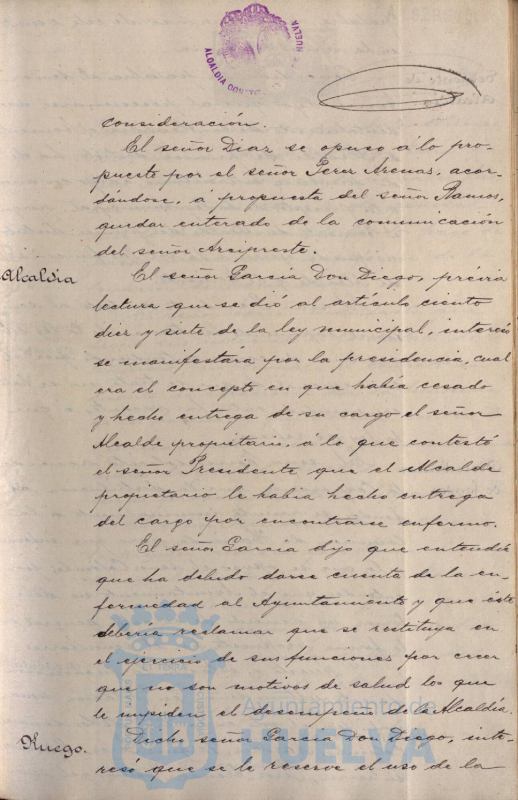 ALCALDÍA CONST HUELVA
consideración.
El señor Diaz se opuso á lo pro-
puesto por el señor Perez Arenas, acor-
dándose, á propuesta del señor Ramos,
quedar enterado de la comunicación
del señor Arcipreste.
Alcaldía
El señor García Don Diego, prévia
lectura que se dió al artículo ciento
diez y siete de la ley municipal, interesó
se manifestára por la presidencia, cual
era el concepto en que habia cesado
y hecho entrega de su cargo el señor
Alcalde propietario, á lo que contestó
el señor Presidente que el Alcalde
propietario le habia hecho entrega
del cargo por encontrarse enfermo.
El señor García dijo que entendía
que ha debido darse cuenta de la en-
fermedad al Ayuntamiento y que éste
debería reclamar que se restituya en
el ejercicio de sus funciones por creer
que no son motivos de salud los que
le impiden el desempeño de la Alcaldía.
Ruego.
Dicho señor García Don Diego, inte-
resó que se le reserve el uso de la
Ayuntamiento de
HUELVA